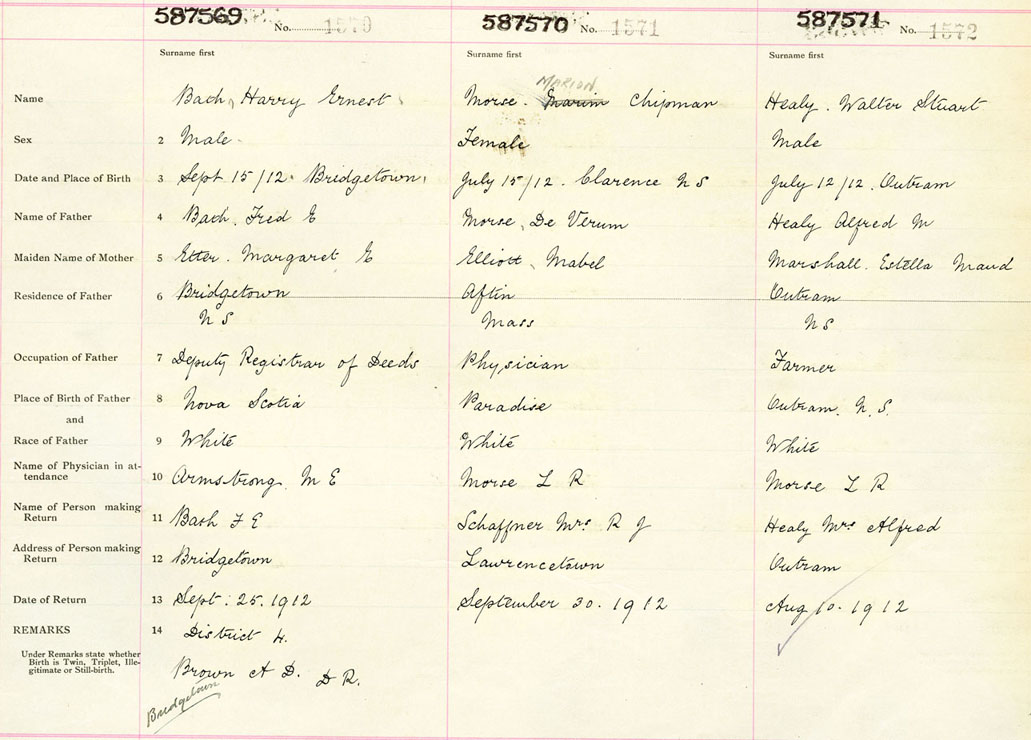 587569 No. 1570 587570 No. 1571 587571 No. 1572
Surname first Surname first Surname first
MARION
Name Bath, Harry Ernest Morse. Marion Chipman Healy. Walter Stuart
Sex 2 Male Female Male
Date and Place of Birth 3 Sept 15/12. Bridgetown. July 15/12. Clarence N S July 12/12. Outram
Name of Father 4 Bath. Fred E Morse, De Verum Healy Alfred M
Maiden Name of Mother 5 Etter. Margaret E Elliott, Mabel Marshall. Estella Maud
Residence of Father 6 Bridgetown Aftin Outram
N S Mass N S
Occupation of Father 7 Deputy Registrar of Deeds Physician Farmer
Place of Birth of Father 8 Nova Scotia Paradise Outram. N. S.
and
Race of Father 9 White White White
Name of Physician in at-
tendance 10 Armstrong M E Morse L R Morse L R
Name of Person making
Return 11 Bath F E Schaffner Mrs R J Healy Mrs Alfred
Address of Person making
Return 12 Bridgetown Lawrencetown Outram
Date of Return 13 Sept. 25. 1912 September 30. 1912 Aug 10. 1912
REMARKS 14 District 4.
Under Remarks state whether
Birth is Twin, Triplet, Ille-
gitimate or Still-birth.
Brown A D. D R.
Bridgetown